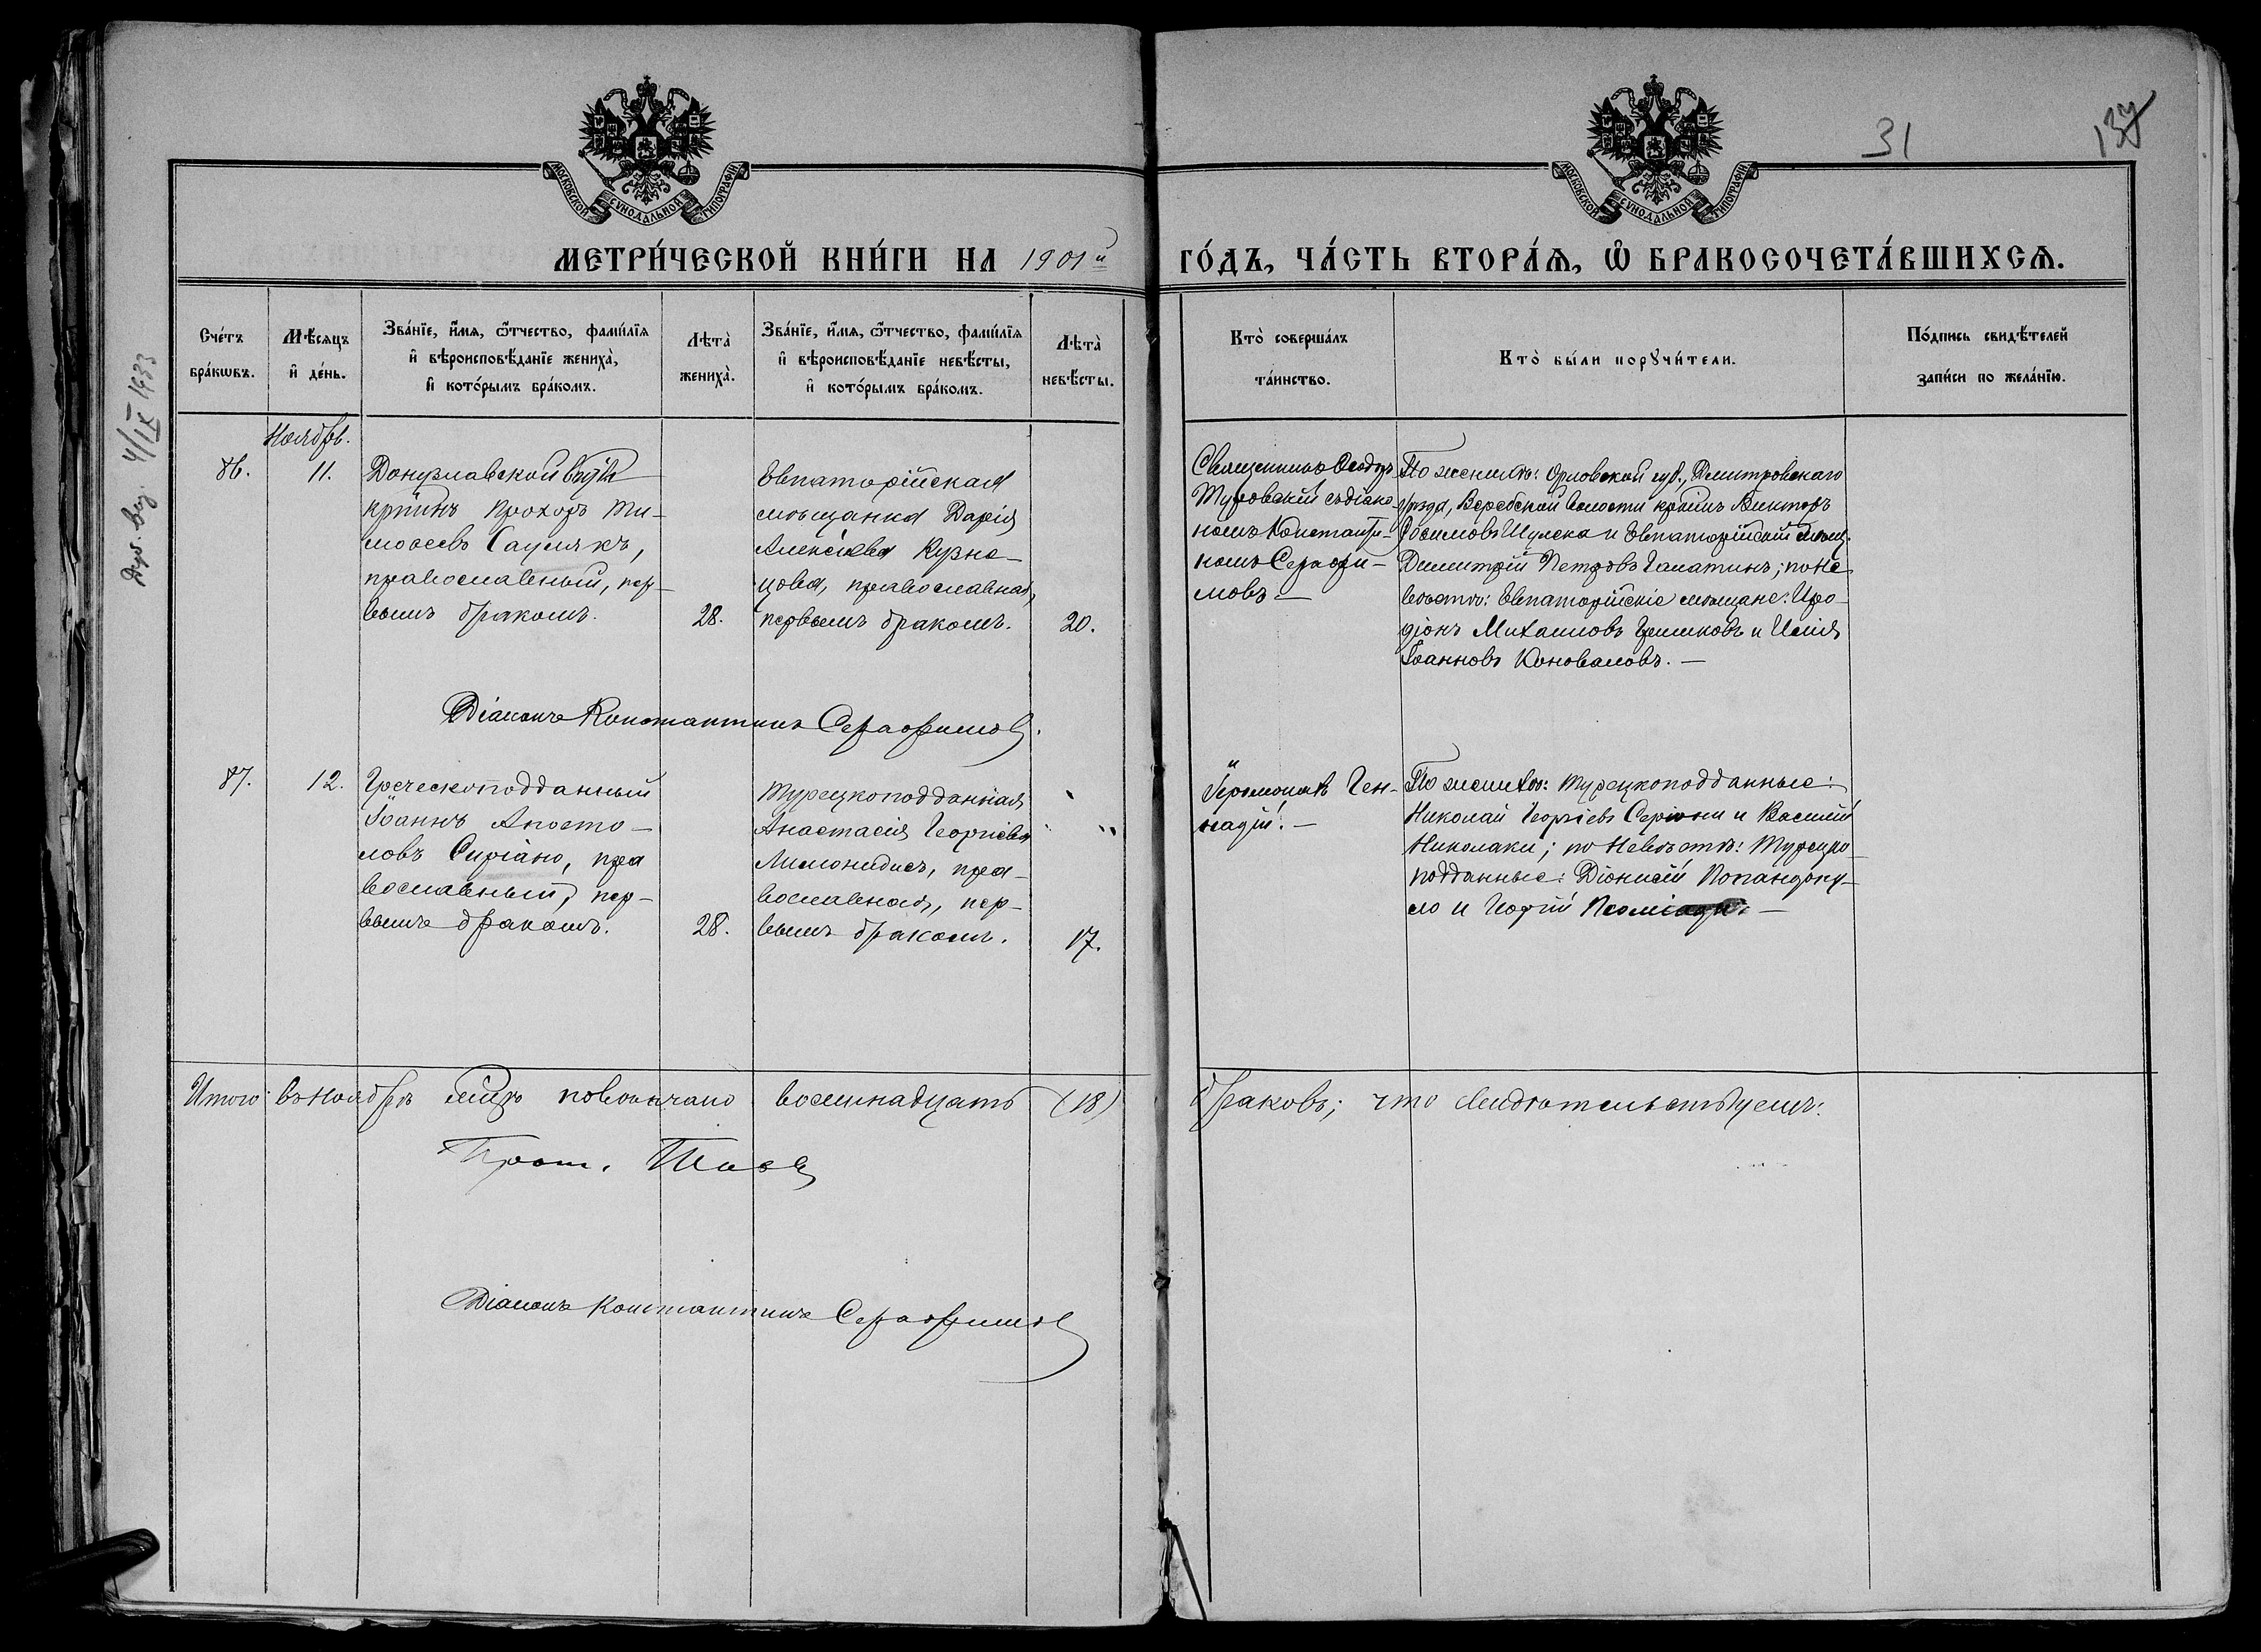 31
137
МОСКОВСКОЙ СУНОДАЛЬНОЙ ТИПОГРАФІИ
МОСКОВСКОЙ СУНОДАЛЬНОЙ ТИПОГРАФІИ
МЕТРИ́ЧЕСКОЙ КНИ́ГИ НА 1901й ГО́ДЪ, ЧА́СТЬ ВТОРА́Ѧ, Ѡ БРАКОСОЧЕТА́ВШИХСѦ.
Сче́тъ
бра́кѡвъ.
Мѣ́сяцъ
и҆ де́нь.
Зва́нїе, и҆́мѧ, ѻ҆́тчество, фами́лїѧ
и҆ вѣроисповѣ́данїе жениха̀,
и҆ кото́рымъ бра́комъ.
Лѣта̀
жениха̀.
Зва́нїе, и҆́мѧ, ѻ҆́тчество, фами́лїѧ
и҆ вѣроисповѣ́данїе невѣ́сты,
и҆ кото́рымъ бра́комъ.
Лѣта̀
невѣ́сты.
Кто̀ соверша́лъ
та́инство.
Кто̀ бы́ли порꙋчи́тели.
По́дпись свидѣ́телей
за́писи по жела́нїю.
4/IX 1933
Ноябрь.
86.
11.
Донузлавской
крпинъ Прохоръ Ти-
моѳеевъ
православный, пер-
вымъ бракомъ.
28.
Евпаторійская
мѣщанка Дарія
Алексіева Кузне-
цова, православная,
первымъ бракомъ.
20.
Священникъ Ѳеодоръ
Туровскій съ діако-
номъ Константи-
номъ Серафи-
мовъ.—
По женихѣ: Орловской губ., Дмитровскаго
уѣзда, Веребской волости крпинъ Викторъ
и Евпаторійскій мѣщ.
Димитрій Петровъ Галатинъ; по не
вѣстѣ: Евпаторійскіе мѣщане: Иро-
діонъ Михаиловъ и Илія
Іоанновъ Коноваловъ.—
Діаконъ Константинъ Серафимовъ.
87.
12.
Греческоподданный
Іоаннъ Апосто-
ловъ Сиріано, пра
вославный, пер-
вымъ бракомъ.
28.
Турецкоподданная
Анастасія Георгіева
Лимонидисъ, пра-
вославная, пер-
вымъ бракомъ.
17.
Іеромонахъ Ген-
надій.—
По женихѣ: турецкоподданные:
Николай Георгіевъ и Василій
Николаки; по невѣстѣ: Турецко-
подданные: Діонисій Попандопу-
ло и Георгій
Итого: въ ноябрѣ мцѣ повѣнчано восимнадцать (18) браковъ; что свидѣтельствуемъ:
Прот.
Діаконъ Константинъ Серафимовъ